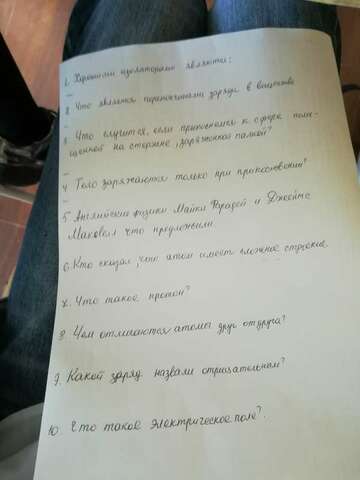 1. Хорошими изоляторами являются:
—
2. Что является переносчиками заряда в веществе
—
3. Что случится, если прикоснемся к сфере поме-
щенной на стержне, заряженной палкой?
—
4. Тело заряжаются только при прикосновении?
—
5. Английские физики Майкл Фарадей и Джеймс
Максвелл что предложили.
6. Кто сказал, что атом имеет сложное строение
7. Что такое протон?
8. Чем отличаются атомы друг от друга?
9. Какой заряд назвали отрицательным?
10. Что такое электрическое поле?